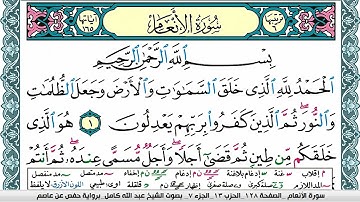 ترتيبها ٦ سورة الأنعام آياتها ١٦٥
بِسْمِ اللَّهِ الرَّحْمَٰنِ الرَّحِيمِ
الْحَمْدُ لِلَّهِ الَّذِي خَلَقَ السَّمَٰوَٰتِ وَالْأَرْضَ وَجَعَلَ الظُّلُمَٰتِ
وَالنُّورَ ۖ ثُمَّ الَّذِينَ كَفَرُوا بِرَبِّهِمْ يَعْدِلُونَ ١ هُوَ الَّذِي
خَلَقَكُم مِّن طِينٍ ثُمَّ قَضَىٰ أَجَلًا ۖ وَأَجَلٌ مُّسَمًّى عِندَهُ ۖ ثُمَّ أَنتُمْ
سورة الأنعام الصفحة ١٢٨ الحزب ١٣ الجزء ٧ بصوت الشيخ عبد الله كامل برواية حفص عن عاصم